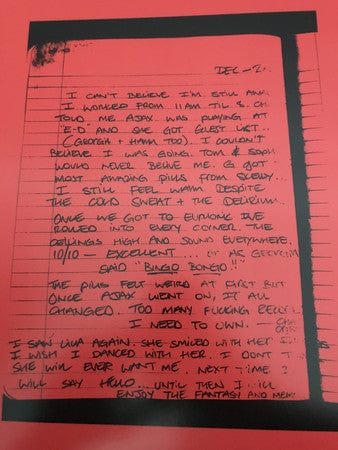 DEC - 2
I CAN'T BELIEVE I'M STILL AWA
I WORKED FROM 11AM TIL 8. CH
TOLD ME AJAX WAS PLAYING AT
"E-D" AND SHE GOT GUEST LIST..
(GEORGIA + HAMM TOO). I COULDN'T
BELIEVE I WAS GOING. TOM &
WOULD NEVER BELIVE ME. G GOT
MOST AMAZING PILLS FROM
I STILL FEEL WARM DESPITE
THE COLD SWEAT + THE DELIRIUM.
ONCE WE GOT TO EUPHORIC IVE
ROLLED INTO EVERY CORNER. THE
CEILINGS HIGH AND SOUND EVERYWHERE.
10/10 - EXCELLENT... OR AS GEORGIA
SAID "BINGO BONGO"!!
THE PILLS FELT WEIRD AT FIRST BUT
ONCE AJAX WENT ON, IT ALL
CHANGED. TOO MANY FUCKING RECOR
I NEED TO OWN. -
I SAW LILA AGAIN. SHE SMILED WITH HER
I WISH I DANCED WITH HER. I DONT T
SHE WILL EVER WANT ME. NEXT TIME I
WILL SAY HELLO... UNTIL THEN I WILL
ENJOY THE FANTASY AND MEM